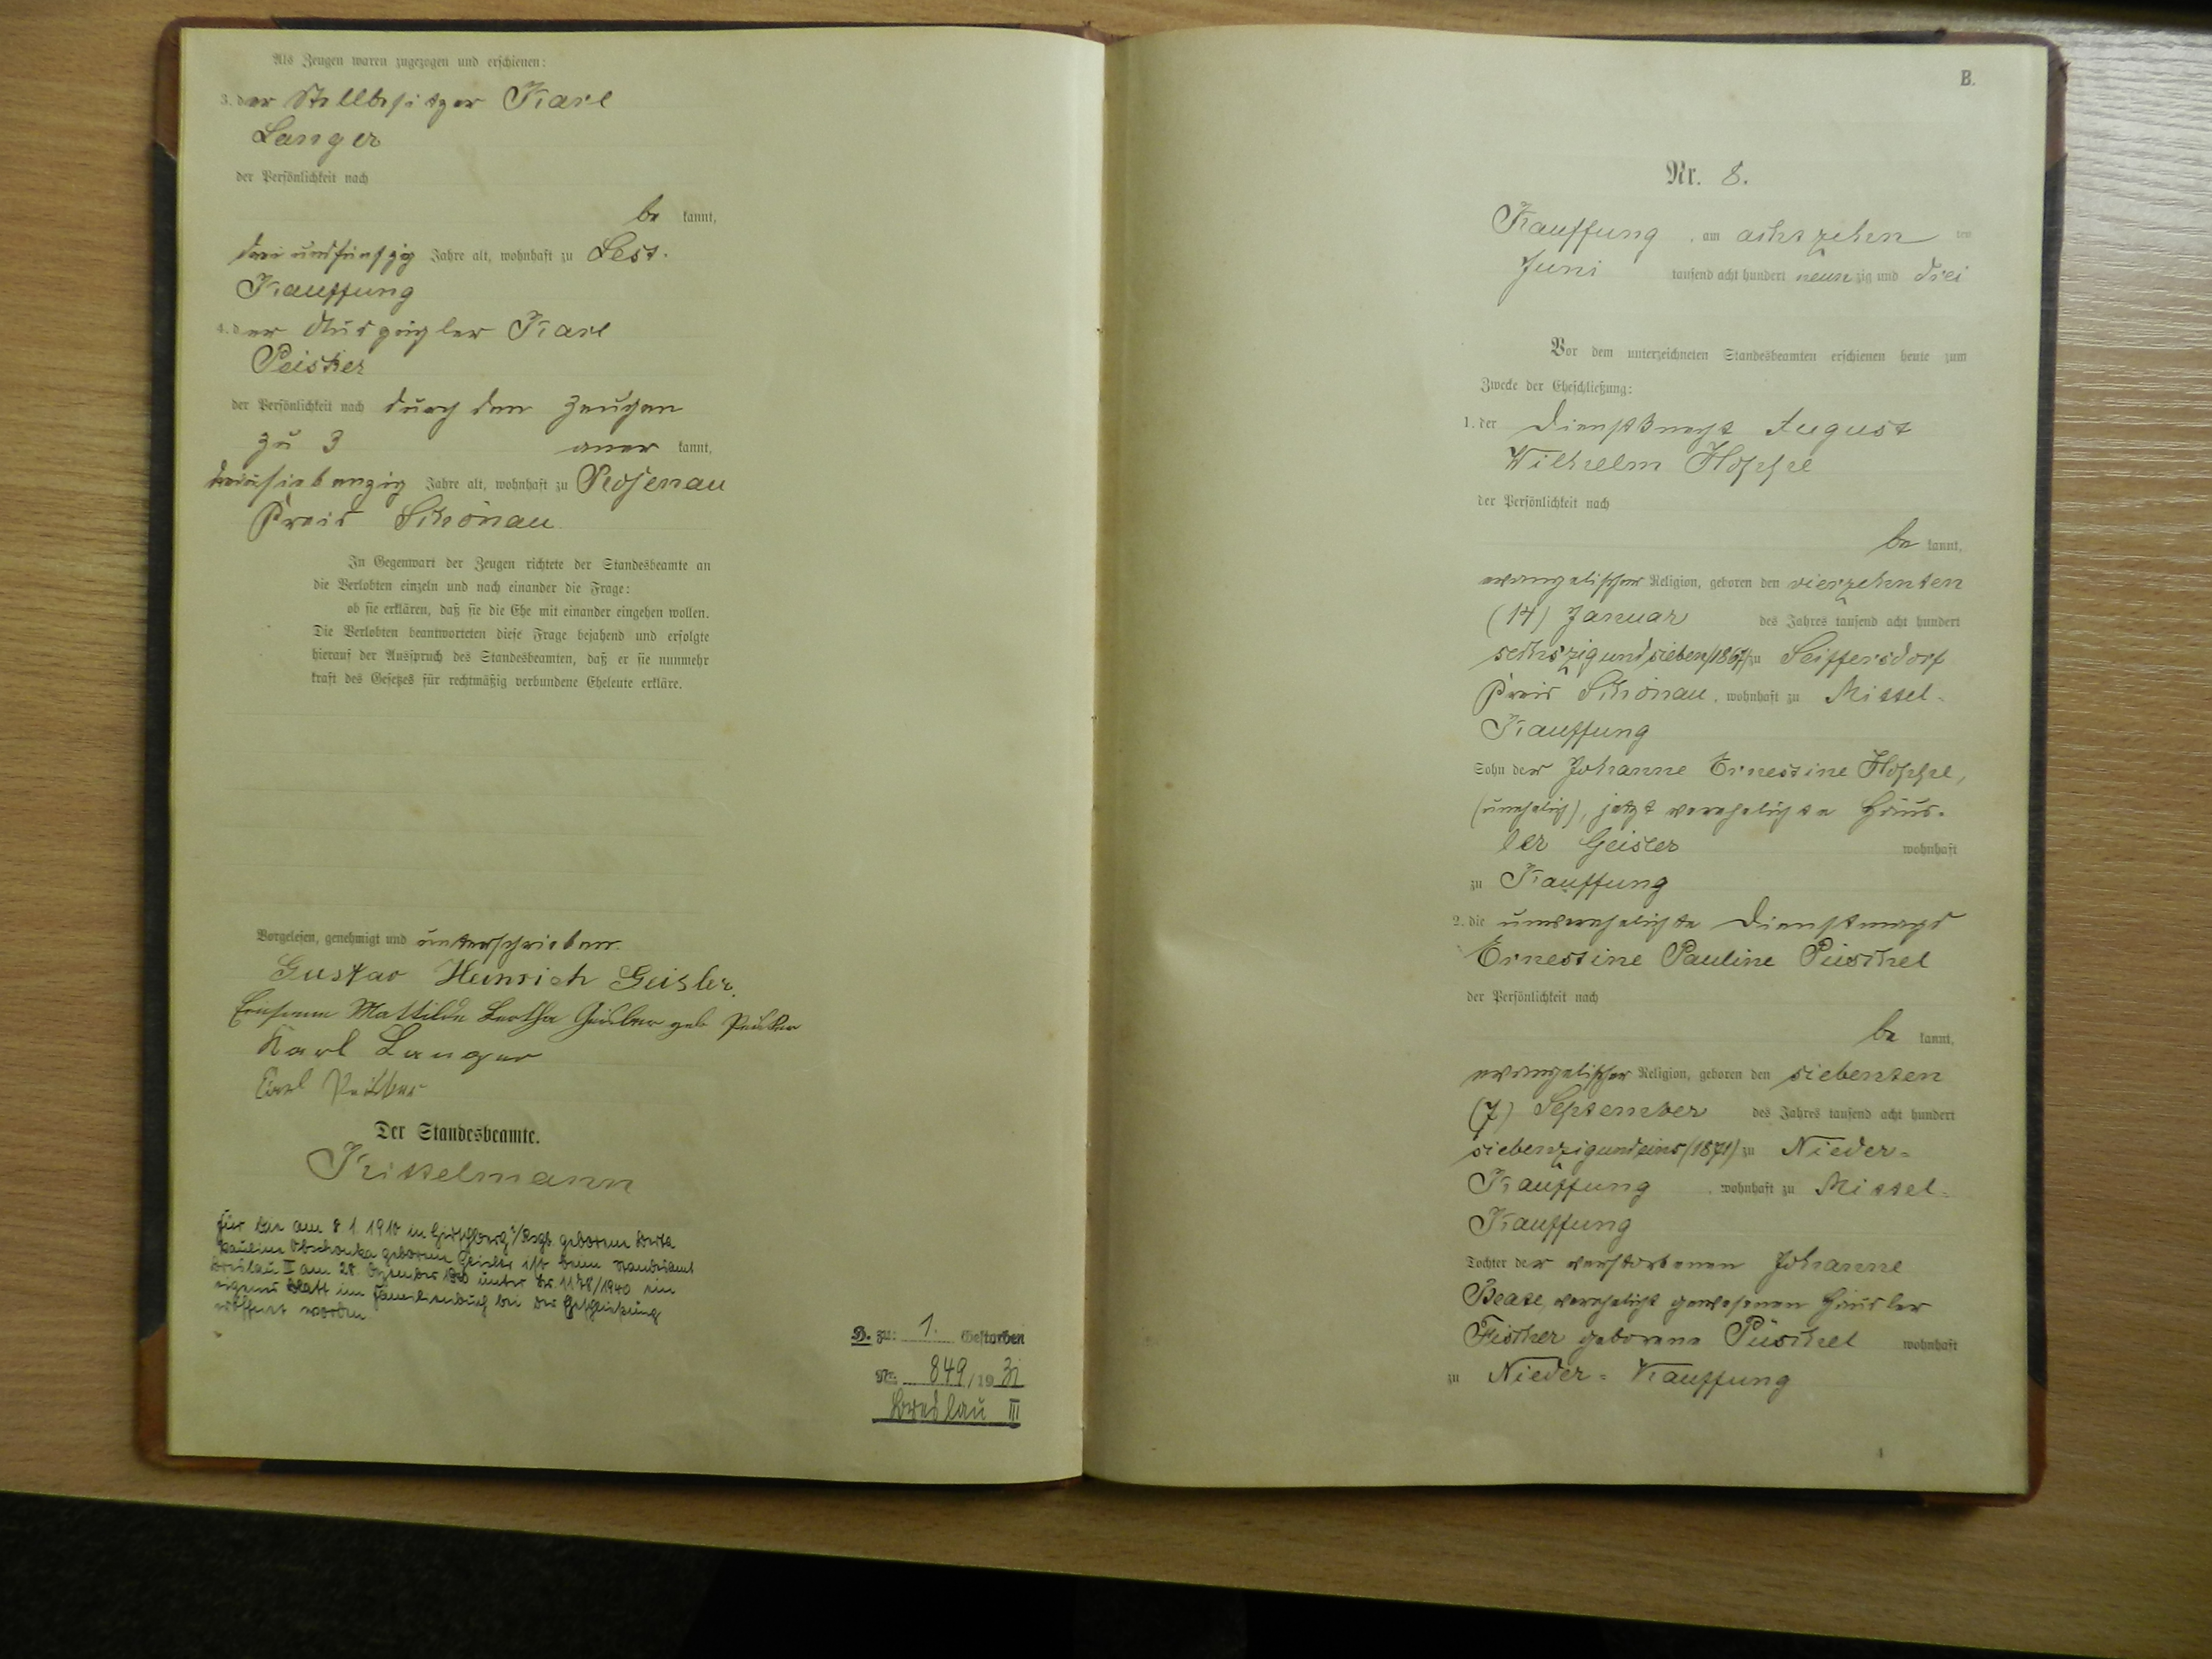 Als Zeugen waren zugezogen und erschienen:
3. der Stellbesitzer Karl
Langer
der Persönlichkeit nach
be kannt,
dreiundfünfzig Jahre alt, wohnhaft zu Lest-
Kauffung
4. der Auszügler Karl
Peisker
der Persönlichkeit nach durch den Zeugen
zu 3 aner kannt,
siebenzig Jahre alt, wohnhaft zu Rosenau
Kreis Schönau
In Gegenwart der Zeugen richtete der Standesbeamte an
die Verlobten einzeln und nach einander die Frage:
ob sie erklären, daß sie die Ehe mit einander eingehen wollen.
Die Verlobten beantworteten diese Frage bejahend und erfolgte
hierauf der Ausspruch des Standesbeamten, daß er sie nunmehr
kraft des Gesetzes für rechtmäßig verbundene Eheleute erkläre.
Vorgelesen, genehmigt und unterschrieben
Gustav Heinrich Geisler.
Mathilde Bertha Geisler geb Peisker
Karl Langer
Karl Peisker
Der Standesbeamte.
Kittelmann
Für die am 8. 1. 1910 in Hirschberg i/Rsgb. geborene Berta
Pauline Obschonka geborene Geisler ist beim Standesamt
Breslau II am 28. Dezember 1940 unter Nr. 1178/1940 ein
eigenes Blatt im Familienbuch bei der Eheschließung
eröffnet worden.
H. zu: 1. Gestorben
Nr. 849/1931
Breslau III
B.
Nr. 8.
Kauffung, am achtzehn ten
Juni tausend acht hundert neunzig und drei
Vor dem unterzeichneten Standesbeamten erschienen heute zum
Zwecke der Eheschließung:
1. der Dienstknecht August
Wilhelm Hoppe
der Persönlichkeit nach
be kannt,
evangelischer Religion, geboren den vierzehnten
(14) Januar des Jahres tausend acht hundert
sechszigundsieben (1867) zu Seiffersdorf
Kreis Schönau, wohnhaft zu Mittel-
Kauffung
Sohn der Johanne Ernestine Hoppe,
(unehelich), jetzt verehelichte Häus-
ler Geisler wohnhaft
zu Kauffung
2. die unverehelichte Dienstmagd
Ernestine Pauline Püschel
der Persönlichkeit nach
be kannt,
evangelischer Religion, geboren den siebenten
(7) September des Jahres tausend acht hundert
siebenzigundeins (1871) zu Nieder-
Kauffung, wohnhaft zu Mittel-
Kauffung
Tochter der verstorbenen Johanne
Beate, verehelicht gewesenen Häusler
Fischer geborene Püschel wohnhaft
zu Nieder-Kauffung